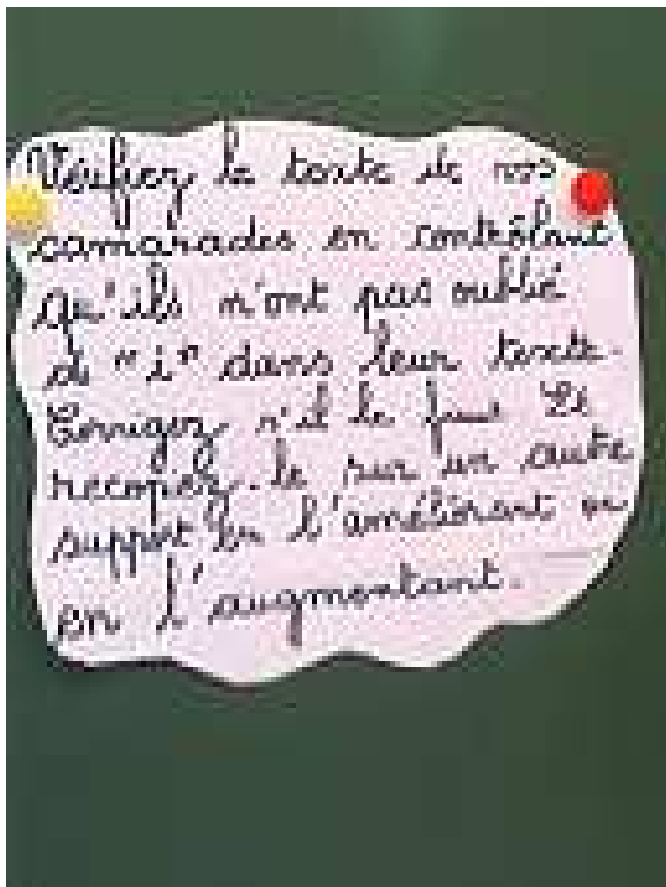 Vérifiez le texte de vos
camarades en contrôlant
qu'ils n'ont pas oublié
de "i" dans leur texte.
Corrigez s'il le faut. Et
recopiez-le sur un autre
support en l'améliorant ou
en l'augmentant.